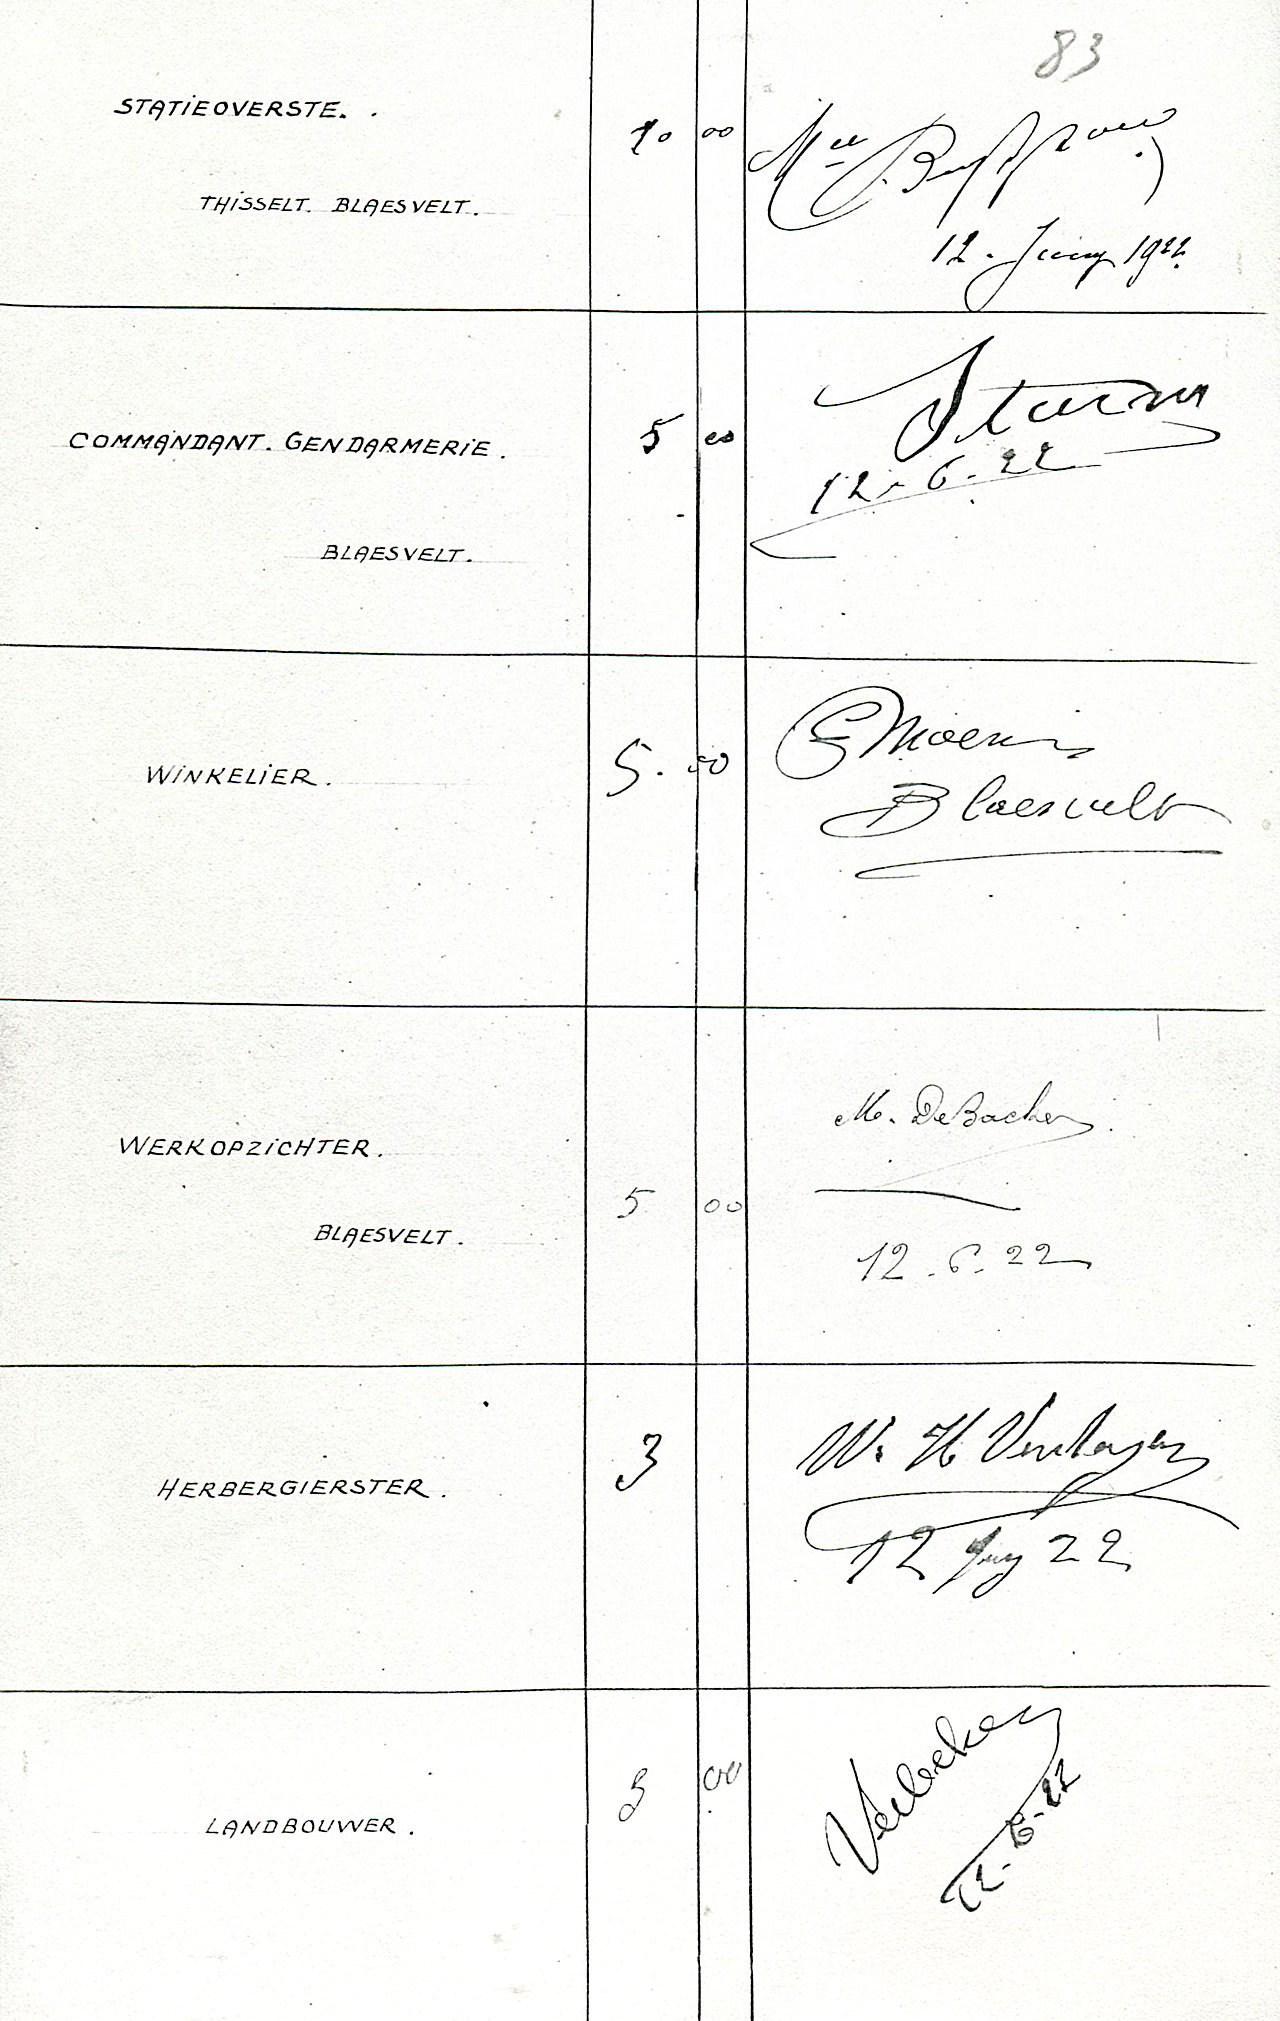 83
STATIEOVERSTE.
THISSELT. BLAESVELT.
10 00
12. Juny 1922.
COMMANDANT. GENDARMERIE.
BLAESVELT.
5 00
Sturm
12.6.22
WINKELIER.
5. 00
Blaesvelt
WERKOPZICHTER.
BLAESVELT.
5 00
M. DeBacker.
12.6.22
HERBERGIERSTER.
3
W. H Verhagen
12 Juny 22
LANDBOUWER.
00
Verbeken
12.6.22